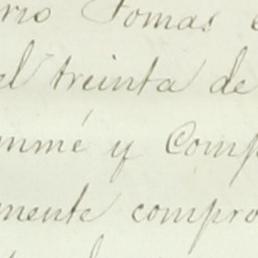 rio Tomas
el treinta de
nmé y Comp
mente compro